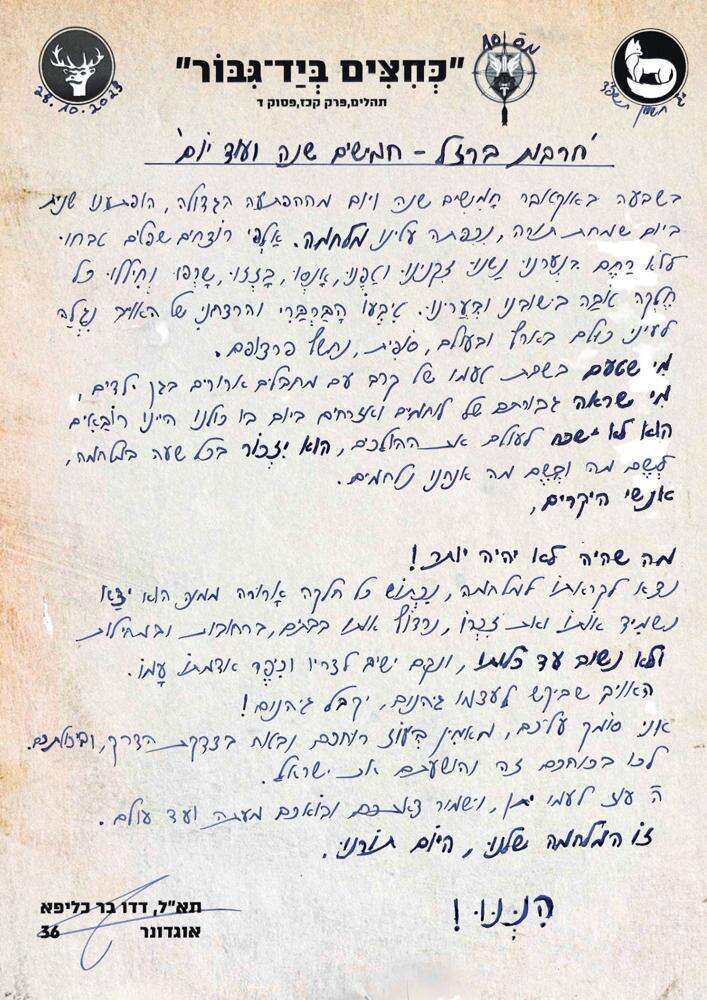 "כְּחִצִּים בְּיַד־גִּבּוֹר"
תהלים, פרק קכז, פסוק ד
מס 10
28.10.2023
יג חשוון תשפ"ד
'חרבות ברזל - חמישים שנה ועוד יום'
בשבעה באוקטובר חֲמִשִּׁים שנה ויום מההפתעה הגדולה, הופתענו שנית
ביום שמחת תורה, נִכפתה עלינו מלחמה. אַלְפֵי רוצחים שפלים טבחו
ללא רַחֵם בִּנְעָרֵנוּ נָשֵׁנוּ זְקֵנֵינוּ וְטַפֵּנוּ, אָנְסוּ, בָּזְזוּ, שָׂרְפוּ וְחִיללוּ כל
חֶלְקָה טוֹבָה בישובנו ובְעָרֵינוּ. טִיבְעוֹ הַבַּרְבָּרִי והרצחני של האויב נִגְלָה
לעיני כולם בארץ ובעולם, סוֹפִית, נחשף פרצופם.
מִי שטעם בשפת טעמו של קרב עם מחבלים ארורים בגן ילדים,
מִי שראה גבורתם של לוחמים ואזרחים ביום בו כולנו היינו רוֹבָאִים
הוא לא ישכח לעולם את ההולכים, הוא יִזְכּוֹר בכל שעה במלחמה,
לְשֵׁם מה וּבְשֵׁם מה אנחנו נלחמים.
אנשי היקרים,
מה שהיה לא יהיה יותר!
נצא לקראתו למלחמה, נִכְתּוֹשׁ כל חלקה אֲרוּרה ממנה הוא יָצָא
נשמיד אוֹתוֹ ואת זִכְרוֹ, נרדוף אותו בבתים, ברחובות ובמחילות
ולא נשוב עד כלותו, ונקם ישיב לצריו וכִיפֵר אדמתו עַמּוֹ.
האויב שביקש לעצמו גיהנום, יקבל גיהנום!
אני סומך עליכם, מאמין בְּעוֹז רוחכם ובטוח בצדקת הדרך, וביכולתכם.
לכו בכוחכם זה והושעתם את ישראל.
ה' עוז לעמו יתן, וישמור צאתכם ובואכם מעתה ועד עולם.
זוֹ המלחמה שלנוּ, היוֹם תוֹרֵנוּ.
הִנְנוּ!
תא"ל, דדו בר כליפא
אוגדונר 36